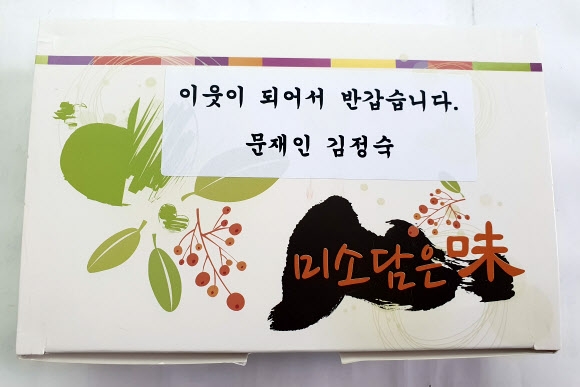 이웃이 되어서 반갑습니다.
문재인 김정숙
미소담은味